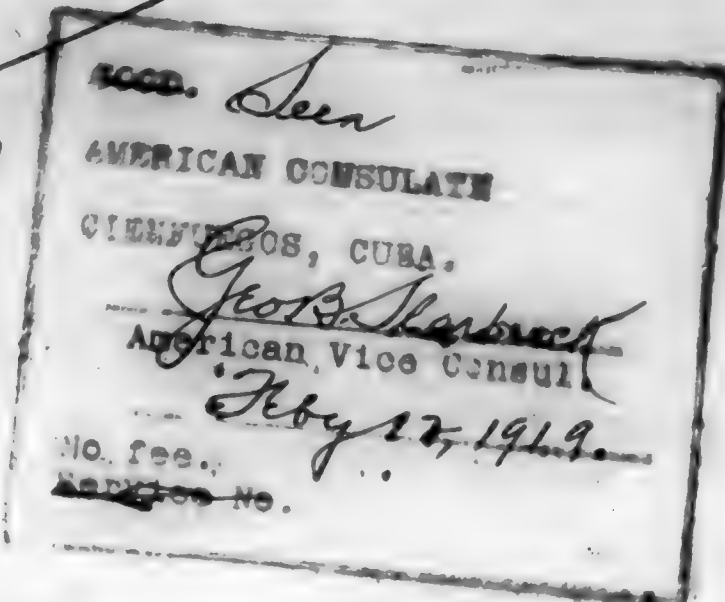 GOOD. Seen
AMERICAN CONSULATE
CIENFUEGOS, CUBA.
Geo. B. Starbuck
American Vice Consul
Feby 12, 1919.
No fee.,
Service No.